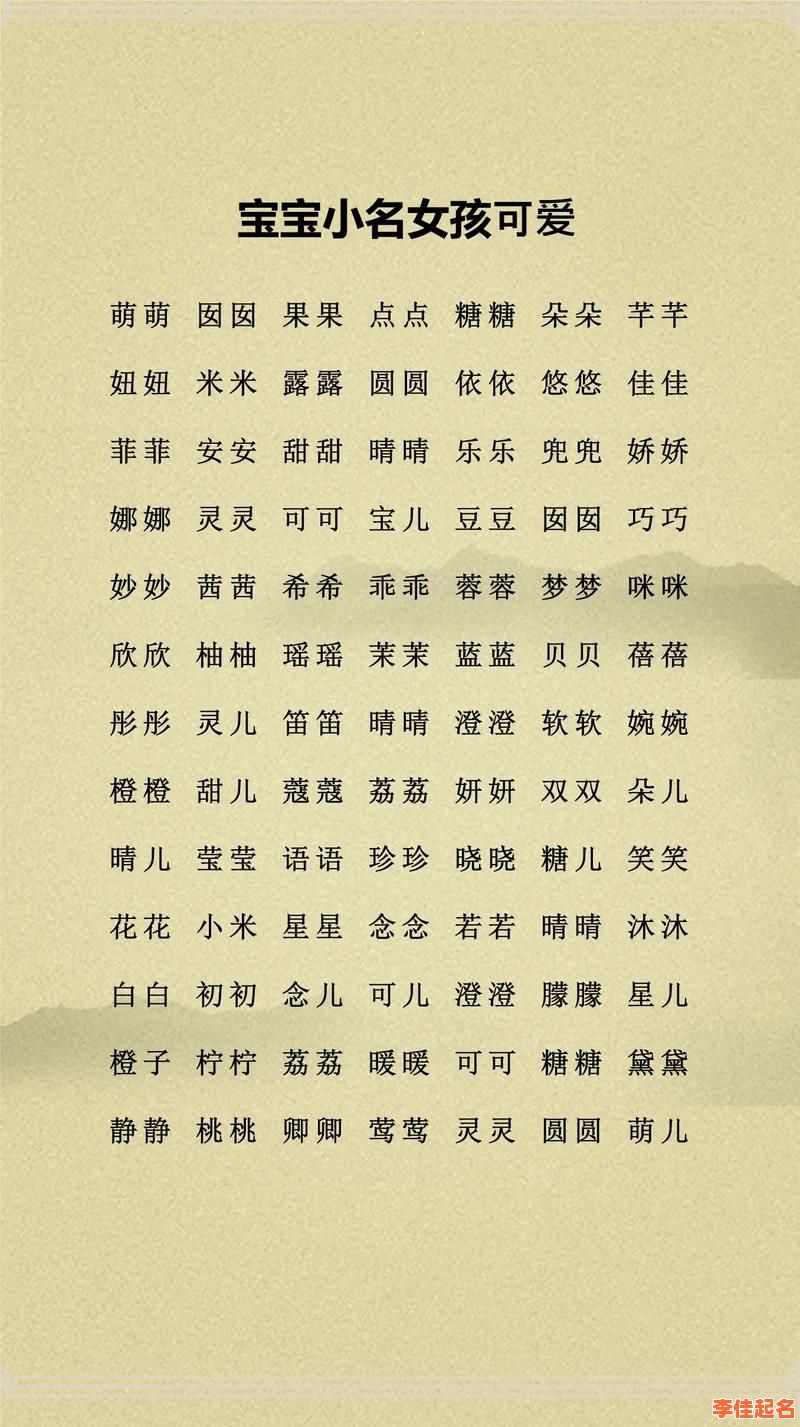 宝宝小名女孩可爱
萌萌 囡囡 果果 点点 糖糖 朵朵 芊芊
妞妞 米米 露露 圆圆 依依 悠悠 佳佳
菲菲 安安 甜甜 晴晴 乐乐 兜兜 娇娇
娜娜 灵灵 可可 宝儿 豆豆 囡囡 巧巧
妙妙 茜茜 希希 乖乖 蓉蓉 梦梦 咪咪
欣欣 柚柚 瑶瑶 茉茉 蓝蓝 贝贝 蓓蓓
彤彤 灵儿 笛笛 晴晴 澄澄 软软 婉婉
橙橙 甜儿 蔻蔻 荔荔 妍妍 双双 朵儿
晴儿 莹莹 语语 珍珍 晓晓 糖儿 笑笑
花花 小米 星星 念念 若若 晴晴 沐沐
白白 初初 念儿 可儿 澄澄 朦朦 星儿
橙子 柠柠 荔荔 暖暖 可可 糖糖 黛黛
静静 桃桃 卿卿 莺莺 灵灵 圆圆 萌儿
李佳起名